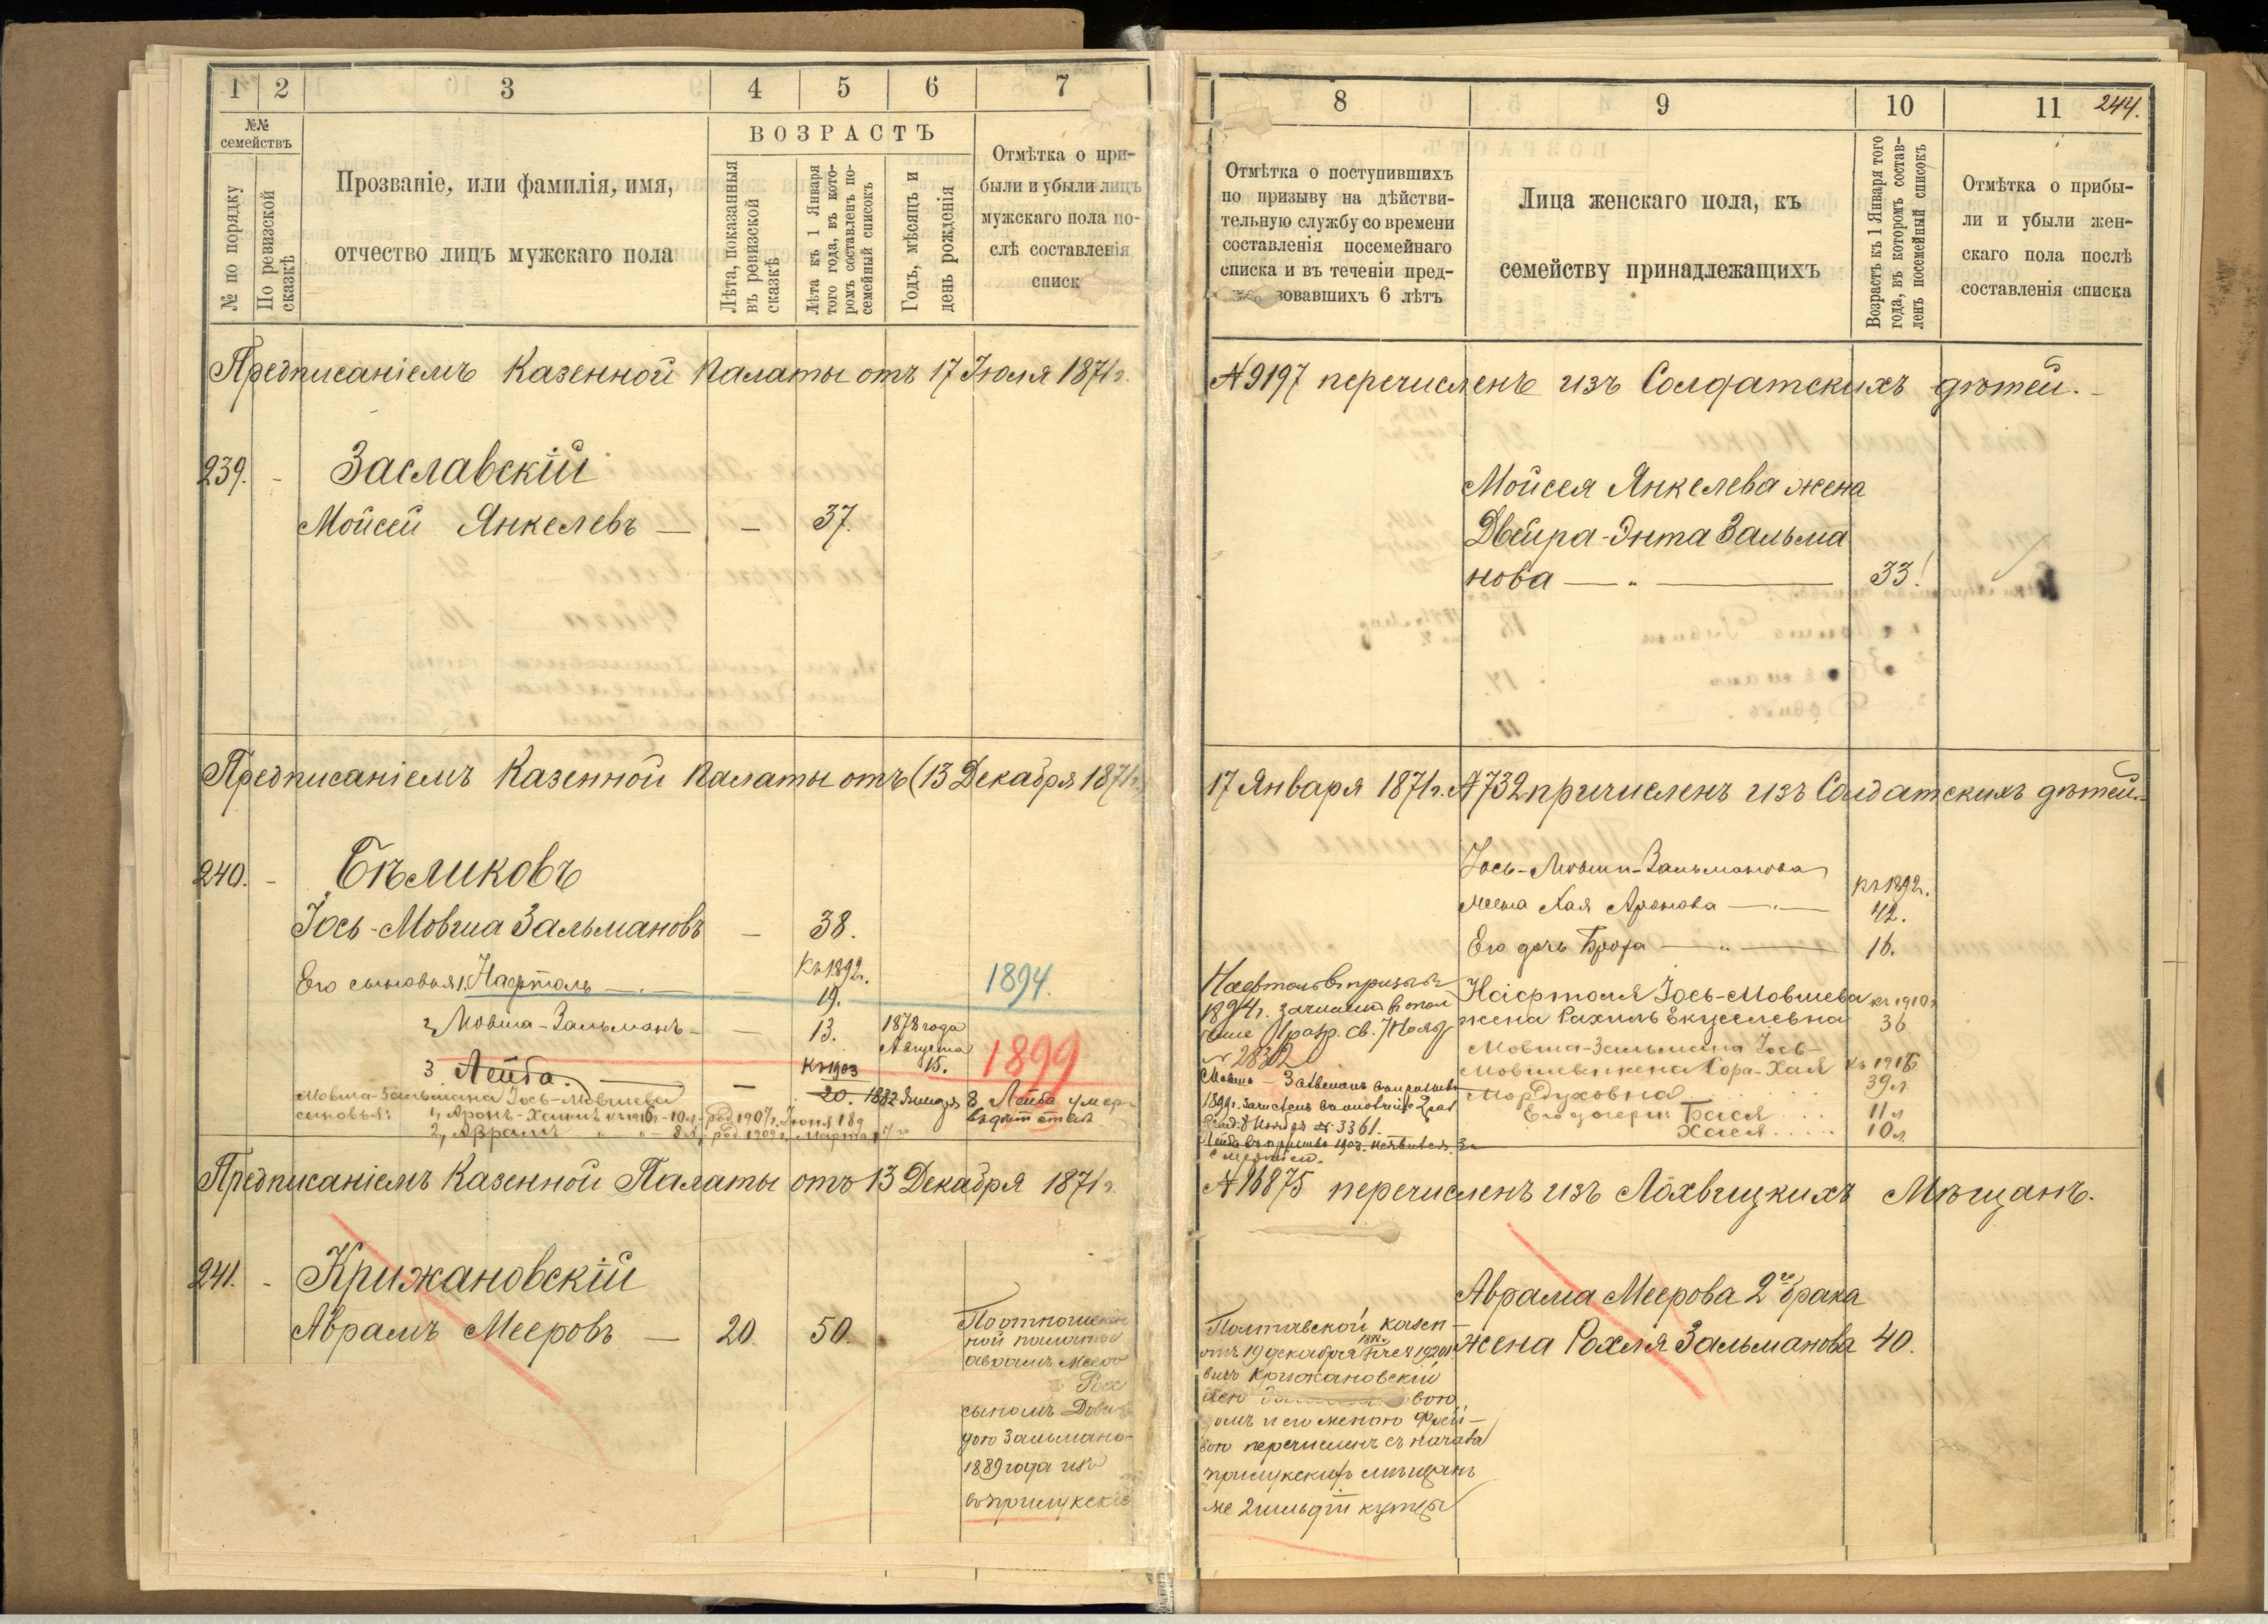 1 2 3 4 5 6 7
№№ семействъ
№ по порядку
По ревизской сказкѣ
Прозваніе, или фамилія, имя,
отчество лицъ мужскаго пола
ВОЗРАСТЪ
Лѣта, показанныя
въ ревизской
сказкѣ
Лѣта къ 1 Января
того года, въ кото-
ромъ составленъ по-
семейный списокъ
Годъ, мѣсяцъ и
день рожденія
Отмѣтка о при-
были и убыли лицъ
мужскаго пола по-
слѣ составленія
списк
Предписаніемъ Казенной Палаты отъ 17 Іюля 1871 г.
239. - Заславскій
Мойсей Янкелевъ — — 37.
Предписаніемъ Казенной Палаты отъ (13 Декабря 1871 г.
240. - Бѣликовъ
Іось-Мовша Зальмановъ — 38.
Къ 1892 г.
Его сыновья 1, Нафтоль — 19. 1894.
2, Мовша-Зальманъ — — 13. 1878 года
Августа
15. 1899
Къ 1903
3 Лейба. — — 20. 1882 Января 8, Лейба умер
Мовша-Зальмана Іось-Мовшева
сыновья: 1, Аронъ-Хаимъ къ 1916 г. - 10 л. род 1907 г. Іюня 18
2, Аврамъ " " - 8 л. род 1909 г. Марта
Предписаніемъ Казенной Палаты отъ 13 Декабря 1871 г.
241. - Крижановскій
Аврамъ Мееровъ — 20. 50.
По отношені
ной палаты
Аврамъ Меера
Рох
сыномъ Дови
дою Зальмано-
1889 года изъ
въ прилукскіе
8 9 10 11 244.
Отмѣтка о поступившихъ
по призыву на дѣйстви-
тельную службу со времени
составленія посемейнаго
списка и въ теченіи пред-
зовавшихъ 6 лѣтъ
Лица женскаго пола, къ
семейству принадлежащихъ
Возрастъ къ 1 Января того
года, въ которомъ состав-
ленъ посемейный списокъ
Отмѣтка о прибы-
ли и убыли жен-
скаго пола послѣ
составленія списка
№ 9197 перечисленъ изъ Солдатскихъ дѣтей. -
Мойсея Янкелева жена
Двейра-Энта Зальма
нова — " — 33.
17 Января 1871 г. № 732 причисленъ изъ Солдатскихъ дѣтей. -
Іось-Мовши-Зальманова
Къ 1892 г.
жена Хая Аронова — 42.
Его дочь Броха — " — 16.
Нафтоль въ призывъ
1894 г. зачисленъ въ опол
ченіе 1 разр. св. 7 Ноября
№ 2832
Нафтоля Іось-Мовшева къ 1910 г.
жена Рахиль Екуселевна 36
Мовша-Зальмана Іось-
Мовшева жена Сора-Хая къ 1916
Мордуховна 39 л.
Его дочери: Бася 11 л
Хася 10 л.
Мовша-Зальманъ въ призывъ
1899 г. зачисленъ
№ 3361.
Лейба въ призывъ 1903 г. не явился за
смертію.
№ 16875 перечисленъ изъ Лохвицкихъ Мѣщанъ.
Аврама Меерова 2го брака
жена Рохля Зальманова 40.
Полтавской казен-
отъ 19 декабря 1888 г. за № 19201
вичъ Крижановскій
вою
омъ и его женою Фей-
вою перечисленъ съ начала
прилукскихъ мѣщанъ
же 2 гильдіи купцы